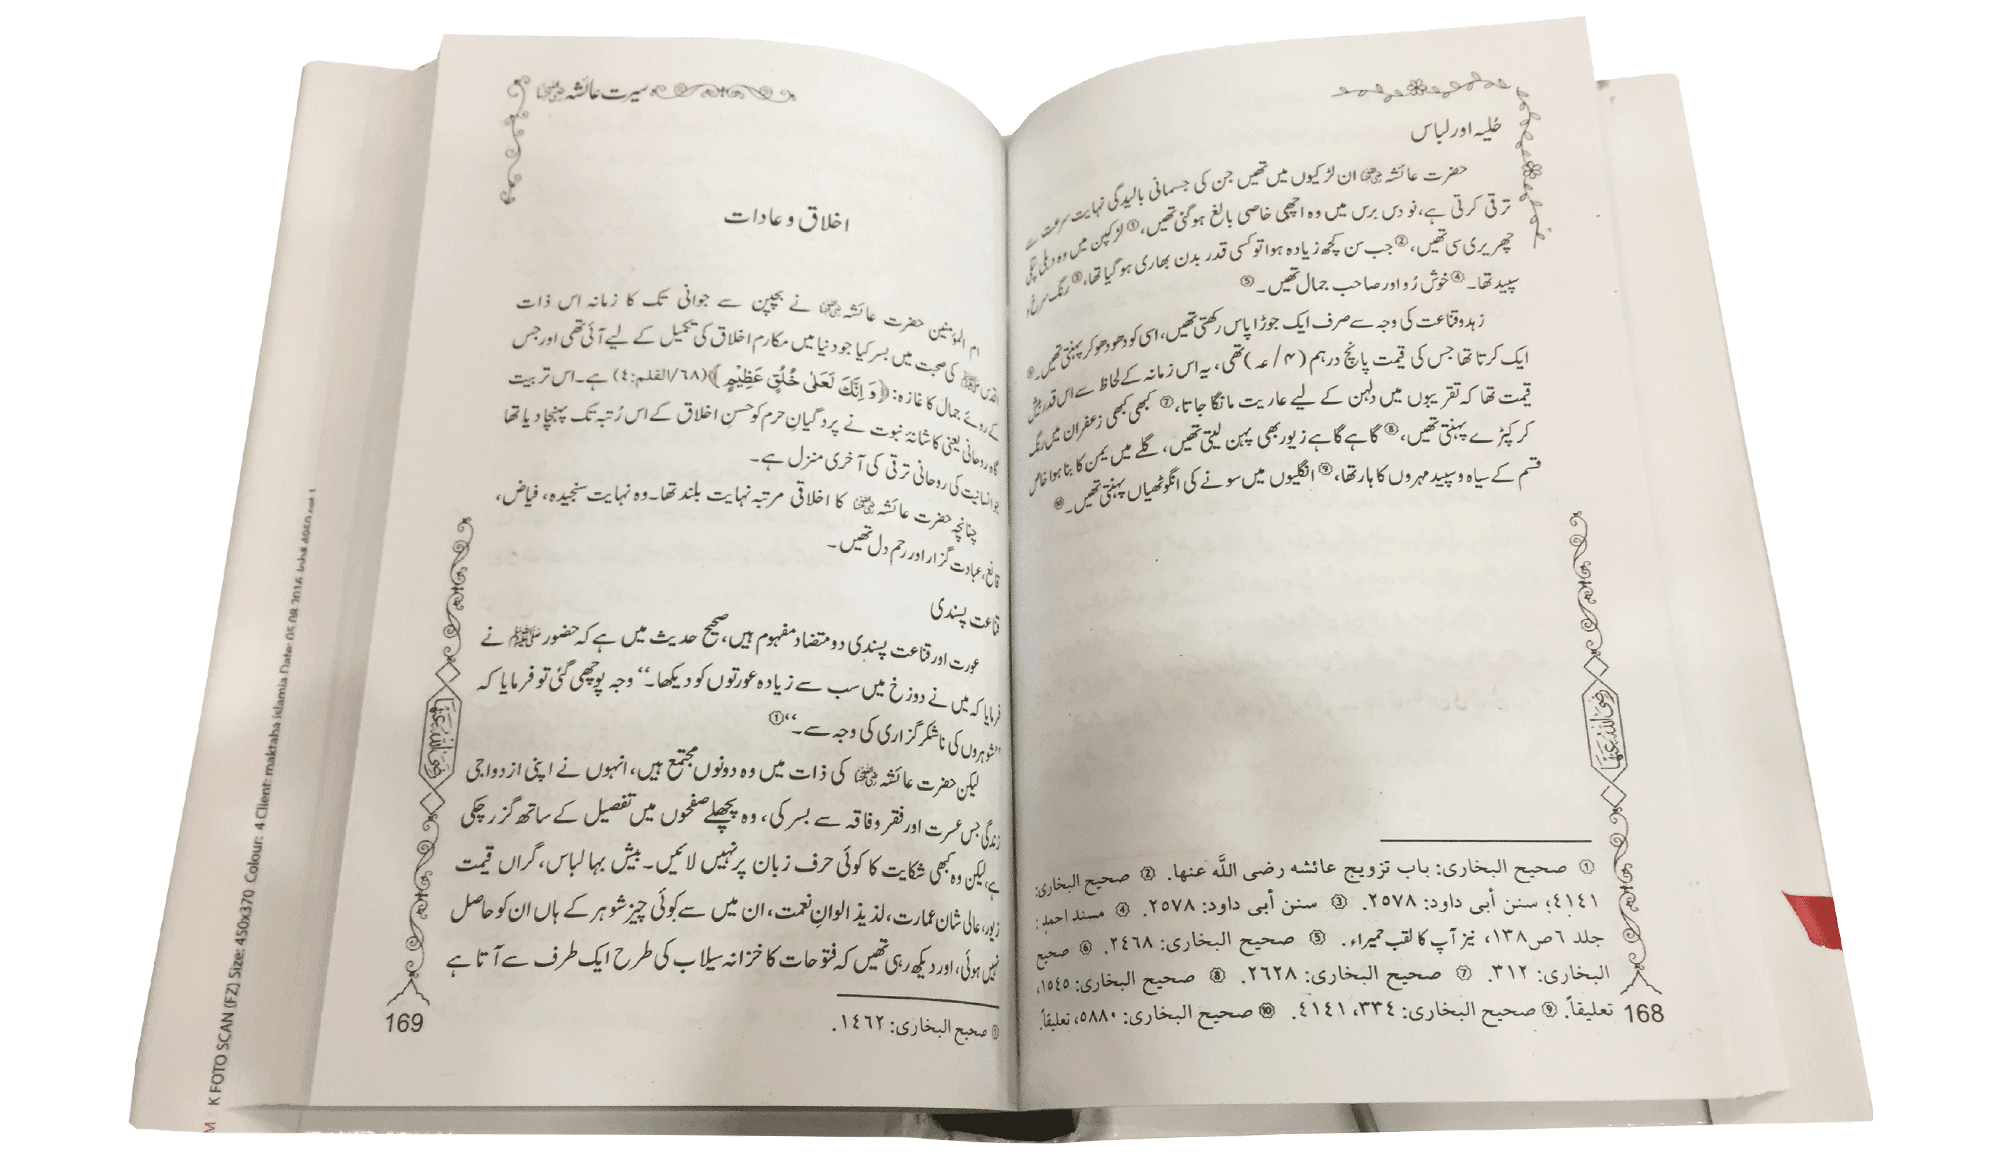 حُلیہ اور لباس
حضرت عائشہ رضی اللہ عنہا ان لڑکیوں میں تھیں جن کی جسمانی بالیدگی نہایت سرعت سے
ترقی کرتی ہے، نو دس برس میں وہ اچھی خاصی بالغ ہوگئی تھیں، ① لڑکپن میں وہ دبلی پتلی
چھریری سی تھیں، ② جب سن کچھ زیادہ ہوا تو کسی قدر بدن بھاری ہو گیا تھا، ③ رنگ سرخ و
سپید تھا۔ ④ خوش رُو اور صاحب جمال تھیں۔ ⑤
زہد و قناعت کی وجہ سے صرف ایک جوڑا پاس رکھتی تھیں، اسی کو دھو دھو کر پہنتی تھیں۔ ⑥
ایک کرتا تھا جس کی قیمت پانچ درہم (۴/عہ) تھی، یہ اس زمانہ کے لحاظ سے اس قدر بیش
قیمت تھا کہ تقریبوں میں دلہن کے لیے عاریت مانگا جاتا، ⑦ کبھی کبھی زعفران میں رنگ
کر کپڑے پہنتی تھیں، ⑧ گاہے گاہے زیور بھی پہن لیتی تھیں، گلے میں یمن کا بنا ہوا خاص
قسم کے سیاہ و سپید مہروں کا ہار تھا، ⑨ انگلیوں میں سونے کی انگوٹھیاں پہنتی تھیں۔ ⑩
رضی اللہ عنہا
① صحیح البخاری: باب تزویج عائشه رضی اللَّه عنها. ② صحیح البخاری:
٤١٤١؛ سنن أبی داود: ٢٥٧٨. ③ سنن أبی داود: ٢٥٧٨. ④ مسند احمد:
جلد ٦ ص ١٣٨، نیز آپ کا لقب حمیراء. ⑤ صحیح البخاری: ٢٤٦٨. ⑥ صحیح
البخاری: ٣١٢. ⑦ صحیح البخاری: ٢٦٢٨. ⑧ صحیح البخاری: ١٥٤٥،
تعلیقاً. ⑨ صحیح البخاری: ٣٣٤، ٤١٤١. ⑩ صحیح البخاری: ٥٨٨٠، تعلیقاً.
168
سیرت عائشہ رضی اللہ عنہا
اخلاق و عادات
ام المؤمنین حضرت عائشہ رضی اللہ عنہا نے بچپن سے جوانی تک کا زمانہ اس ذات
اقدس ﷺ کی صحبت میں بسر کیا جو دنیا میں مکارم اخلاق کی تکمیل کے لیے آئی تھی اور جس
کے روئے جمال کا غازہ: ﴿وَ اِنَّكَ لَعَلٰى خُلُقٍ عَظِيْمٍ﴾ (٦٨/القلم:٤) ہے۔ اس تربیت
گاہ روحانی یعنی کاشانۂ نبوت نے پردگیانِ حرم کو حسن اخلاق کے اس رُتبہ تک پہنچا دیا تھا
جو انسانیت کی روحانی ترقی کی آخری منزل ہے۔
چنانچہ حضرت عائشہ رضی اللہ عنہا کا اخلاقی مرتبہ نہایت بلند تھا۔ وہ نہایت سنجیدہ، فیاض،
قانع، عبادت گزار اور رحم دل تھیں۔
قناعت پسندی
عورت اور قناعت پسندی دو متضاد مفہوم ہیں، صحیح حدیث میں ہے کہ حضور ﷺ نے
فرمایا کہ میں نے دوزخ میں سب سے زیادہ عورتوں کو دیکھا۔‘‘ وجہ پوچھی گئی تو فرمایا کہ
’’شوہروں کی ناشکرگزاری کی وجہ سے۔‘‘ ①
لیکن حضرت عائشہ رضی اللہ عنہا کی ذات میں وہ دونوں مجتمع ہیں، انہوں نے اپنی ازدواجی
زندگی جس عسرت اور فقر و فاقہ سے بسر کی، وہ پچھلے صفحوں میں تفصیل کے ساتھ گزر چکی
ہے، لیکن وہ کبھی شکایت کا کوئی حرف زبان پر نہیں لائیں۔ بیش بہا لباس، گراں قیمت
زیور، عالی شان عمارت، لذیذ الوانِ نعمت، ان میں سے کوئی چیز شوہر کے ہاں ان کو حاصل
نہیں ہوئی، اور دیکھ رہی تھیں کہ فتوحات کا خزانہ سیلاب کی طرح ایک طرف سے آتا ہے
رضی اللہ عنہا
① صحیح البخاری: ١٤٦٢.
169
K FOTO SCAN (FZ) Size: 450x370 Colour: 4 Client: maktaba islamia Date: 05 08 2016